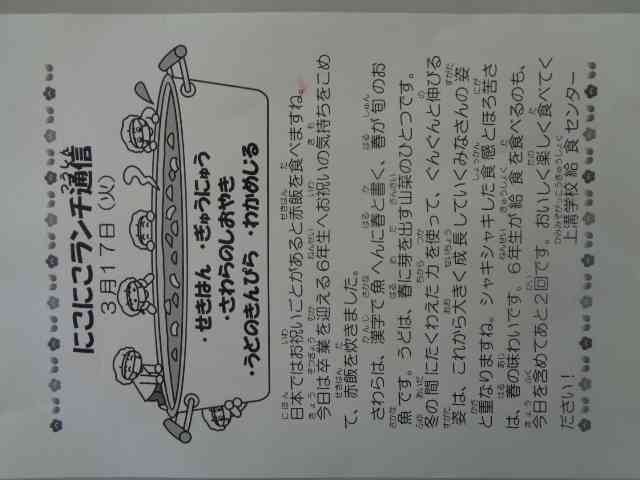 にこにこランチ通信
３月１７日（火）
・せきはん ・ぎゅうにゅう
・さわらのしおやき
・うどのきんぴら ・わかめじる
日本ではお祝いごとがあると赤飯を食べますね。
今日は卒業を迎える６年生へお祝いの気持ちをこめ
て、赤飯を炊きました。
さわらは、漢字で魚へんに春と書く、春が旬のお
魚です。うどは、春に芽を出す山菜のひとつです。
冬の間にたくわえた力を使って、ぐんぐんと伸びる
姿は、これから大きく成長していくみなさんの姿
と重なりますね。シャキシャキした食感とほろ苦さ
は、春の味わいです。６年生が給食を食べるのも、
今日を含めてあと２回です。おいしく楽しく食べてく
ださい！
上溝学校給食センター